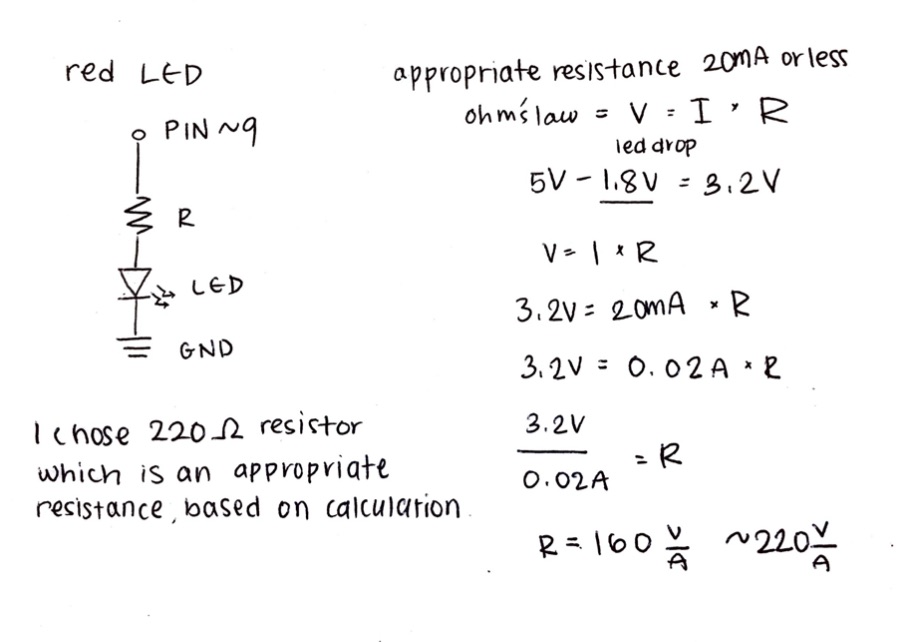 red LED
PIN ~9
R
LED
GND
I chose 220 Ω resistor
which is an appropriate
resistance, based on calculation.
appropriate resistance 20mA or less
ohm's law = V = I * R
led drop
5V - 1.8V = 3.2V
V = I * R
3.2V = 20mA * R
3.2V = 0.02A * R
3.2V
0.02A
= R
R = 160 V/A ~220 V/A